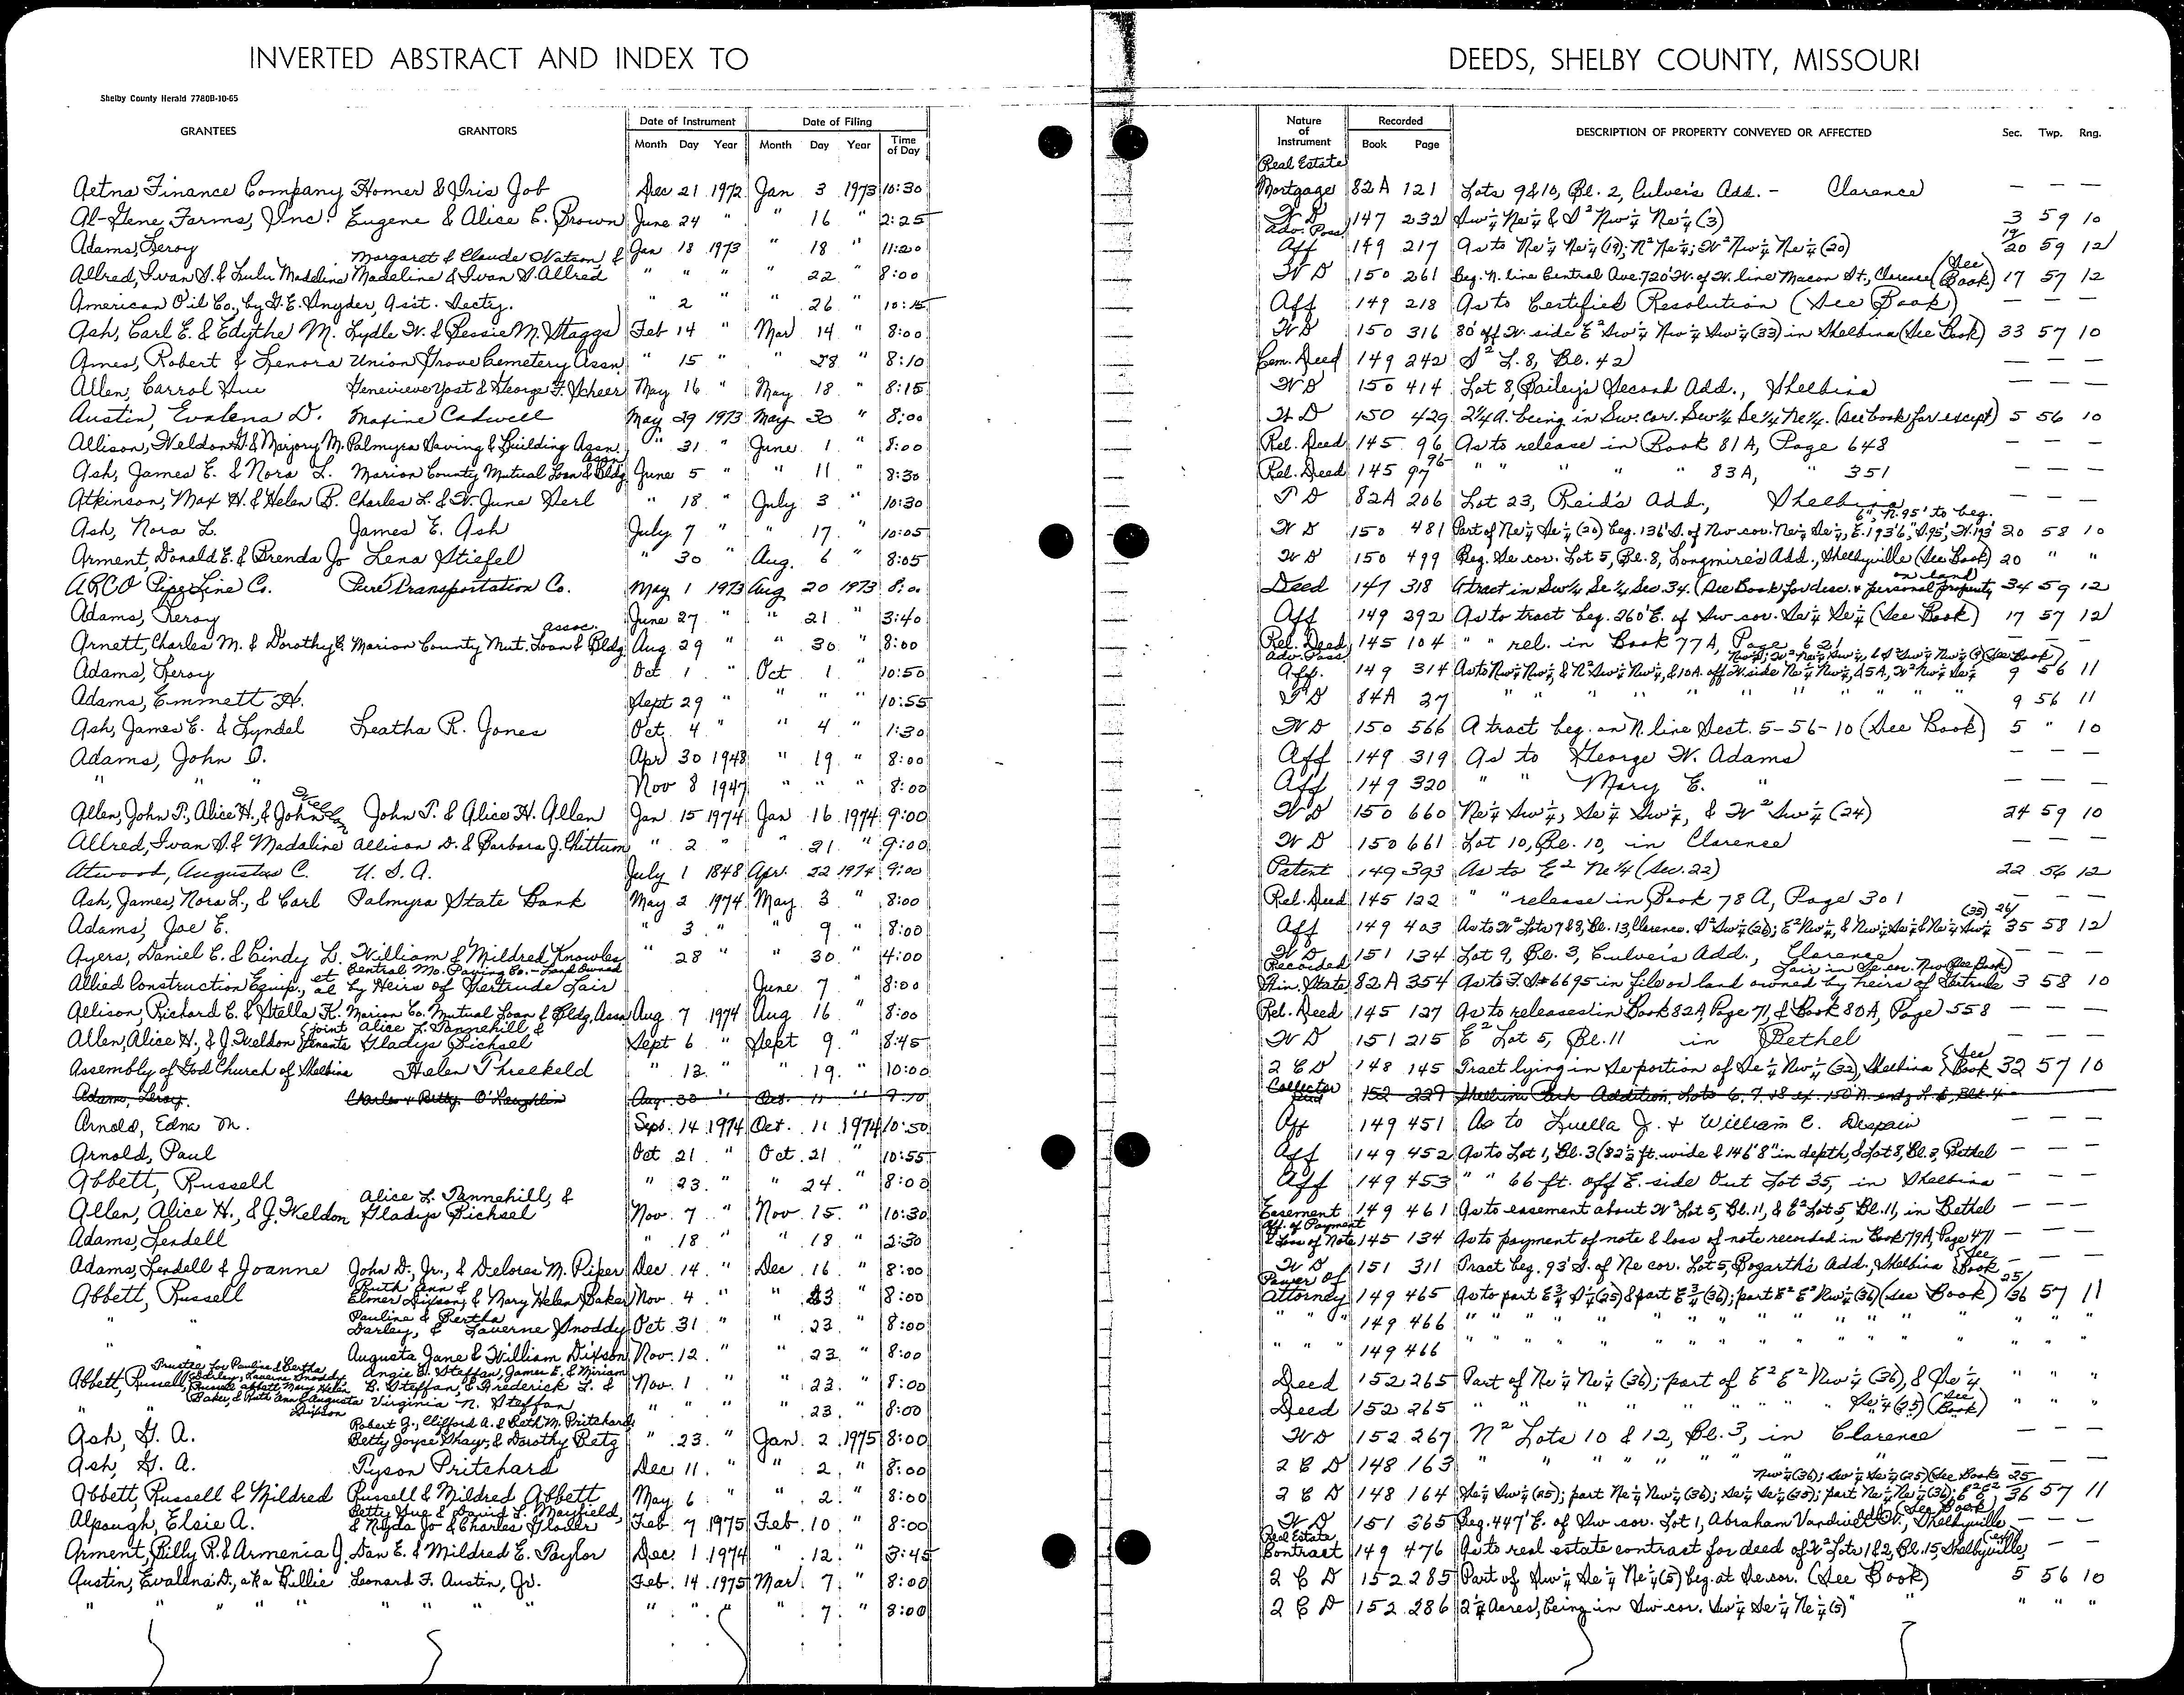 INVERTED ABSTRACT AND INDEX TO DEEDS, SHELBY COUNTY, MISSOURI
Shelby County Herald 7780B-10-65
GRANTEES GRANTORS Date of Instrument Date of Filing Nature of Instrument Recorded DESCRIPTION OF PROPERTY CONVEYED OR AFFECTED Sec. Twp. Rng.
Month Day Year Month Day Year Time of Day Book Page
Aetna Finance Company Homer & Iris Job Dec 21 1972 Jan 3 1973 10:30 Real Estate Mortgage 82A 121 Lots 9&10, Bl. 2, Culver's Add. - Clarence — — —
Al-Gene Farms, Inc. Eugene & Alice C. Brown June 24 " " 16 " 2:25 W D 147 232 Sw¼ Ne¼ & S² Nw¼ Ne¼ (3) 3 59 10
Adams, Leroy Jan 18 1973 " 18 " 11:20 Adv. Poss. Aff 149 217 As to Ne¼ Ne¼ (19); N² Ne¼; W² Nw¼ Ne¼ (20) 19/20 59 12
Allred, Ivan S. & Lulu Madeline Margaret & Claude Watson & Madeline & Ivan S. Allred " " " " 22 " 8:00 W D 150 261 Beg. N. line Central Ave. 720' W. of W. line Macon St., Clarence (See Book) 17 57 12
American Oil Co., by G. E. Snyder, Asit. Secty. " 2 " 26 " 10:15 Aff 149 218 As to Certified Resolution (See Book) — — —
Ash, Carl E. & Edythe M. Lydle W. & Bessie M. Staggs Feb 14 " Mar 14 " 8:00 W D 150 316 80' off W. side E² Sw¼ Nw¼ Sw¼ (33) in Shelbina (See Book) 33 57 10
Ames, Robert & Lenora Union Grove Cemetery Assn " 15 " " 28 " 8:10 Cem. Deed 149 242 S² L. 8, Bl. 42 — — —
Allen, Carrol Sue Genevieve Yost & George F. Scheer May 16 " May 18 " 8:15 W D 150 414 Lot 8, Bailey's Second Add., Shelbina — — —
Austin, Evalena D. Maxine Cadwell May 29 1973 May 30 " 8:00 W D 150 429 2¼ A. being in Sw. cor. Sw¼ Se¼ Ne¼. (See book for except) 5 56 10
Allison, Weldon G. & Marjory M. Palmyra Saving & Building Assn. " 31 " June 1 " 8:00 Rel. Deed 145 96 As to release in Book 81A, Page 648 — — —
Ash, James E. & Nora L. Marion County Mutual Loan & Bldg. Assn June 5 " " 11 " 8:30 Rel. Deed 145 97 96 " " " " " 83A, " 351 — — —
Atkinson, Max H. & Helen B. Charles L. & W. June Perl " 18 " July 3 " 10:30 T D 82A 206 Lot 23, Reid's Add., Shelbina — — —
Ash, Nora L. James E. Ash July 7 " " 17 " 10:05 W D 150 481 Part of Ne¼ Se¼ (20) beg. 136' S. of Nw cor. Ne¼ Se¼, E. 193'6", S. 95', W. 193' 6", N. 95' to beg. 20 58 10
Arment, Donald E. & Brenda Jo Lena Stiefel " 30 " Aug. 6 " 8:05 W D 150 499 Beg. Se cor. Lot 5, Bl. 8, Longmire's Add., Shelbyville (See Book) 20 " "
ARCO Pipe Line Co. Pure Transportation Co. May 1 1973 Aug 20 1973 8:00 Deed 147 318 A tract in Sw¼ Se¼ Sec. 34. (See Book for desc. & personal property on land 34 59 12
Adams, Leroy June 27 " " 21 " 3:40 Aff 149 292 As to tract beg. 260' E. of Sw cor. Se¼ Se¼ (See Book) 17 57 12
Arnett, Charles M. & Dorothy E. Marion County Mut. Loan & Bldg. assoc. Aug. 29 " " 30 " 8:00 Rel. Deed 145 104 " " rel. in Book 77A, Page 621 — — —
Adams, Leroy Oct 1 " Oct 1 " 10:50 Adv. Poss. Aff. 149 314 As to Nw¼ Nw¼, & N² Sw¼ Nw¼, & 10A. off W. side Ne¼ Nw¼, & 5A, W² Nw¼ Se¼ 9 56 11
Adams, Emmett H. Sept 29 " " " " 10:55 T D 84A 27 " " " " " " " " " 9 56 11
Ash, James E. & Lyndel Leatha R. Jones Oct. 4 " " 4 " 1:30 W D 150 566 A tract beg. on N. line Sect. 5-56-10 (See Book) 5 " 10
Adams, John Q. Apr 30 1948 " 19 " 8:00 Aff 149 319 As to George W. Adams — — —
" " " Nov 8 1947 " " " 8:00 Aff 149 320 " " Mary E. " — — —
Allen, John T., Alice H., & John Weldon John T. & Alice H. Allen Jan 15 1974 Jan 16 1974 9:00 W D 150 660 Ne¼ Sw¼, Se¼ Sw¼, & W² Sw¼ (24) 24 59 10
Allred, Ivan S. & Madaline Allison D. & Barbara J. Chittum " 2 " " 21 " 9:00 W D 150 661 Lot 10, Bl. 10, in Clarence — — —
Atwood, Augustus C. U. S. A. July 1 1848 Apr. 22 1974 9:00 Patent 149 393 As to E² Ne¼ (Sec. 22) 22 56 12
Ash, James, Nora L., & Carl Palmyra State Bank May 2 1974 May 3 " 8:00 Rel. Deed 145 122 " " release in Book 78A, Page 301 — — —
Adams, Joe E. " 3 " " 9 " 8:00 Aff 149 403 As to W² Lots 7&8, Bl. 13, Clarence. S² Sw¼ (26); E² Nw¼, & Nw¼ Se¼ & Ne¼ Sw¼ (35) 26/35 58 12
Ayers, Daniel C. & Cindy L. William & Mildred Knowles " 28 " " 30 " 4:00 W D 151 134 Lot 9, Bl. 3, Culver's Add., Clarence — — —
Allied Construction Equip., et al Central Mo. Paving Co. - Land Owned by Heirs of Gertrude Lair June 7 " 8:00 Recorded Fin. State 82A 354 As to F.S.#6695 in file on land owned by heirs of Gertrude Lair in Se cor. Nw (See Book) 3 58 10
Allison, Richard E. & Stella K. Marion Co. Mutual Loan & Bldg. Assn Aug 7 1974 Aug 16 " 8:00 Rel. Deed 145 127 As to releases in Book 82A, Page 71, & Book 80A, Page 558 — — —
Allen, Alice H., & J. Weldon (joint tenants Alice L. Tannehill & Gladys Bichsel Sept 6 " Sept 9 " 8:45 W D 151 215 E² Lot 5, Bl. 11 in Bethel — — —
Assembly of God Church of Shelbina Helen Threlkeld " 12 " " 19 " 10:00 2 C D 148 145 Tract lying in Se portion of Se¼ Nw¼ (32), Shelbina (See Book 32 57 10
Adams, Leroy Charles & Betty O'Laughlin Aug. 30 " Oct. 11 " 9:50 Collector Deed 152 229 Shelbina Park Addition, Lots 6, 7, & 8 ex. 150' N. end
Arnold, Edna M. Sept. 14 1974 Oct. 11 1974 10:50 Aff 149 451 As to Luella J. & William E. Despain — — —
Arnold, Paul Oct 21 " Oct. 21 " 10:55 Aff 149 452 As to Lot 1, Bl. 3 (82½ ft. wide & 146'8" in depth, & Lot 8, Bl. 3, Bethel — — —
Abbett, Russell " 23 " " 24 " 8:00 Aff 149 453 " " 66 ft. off E. side Out Lot 35, in Shelbina — — —
Allen, Alice H., & J. Weldon Alice L. Tannehill, & Gladys Bichsel Nov. 7 " Nov. 15 " 10:30 Easement 149 461 As to easement about W² Lot 5, Bl. 11, & E² Lot 5, Bl. 11, in Bethel — — —
Adams, Lendell " 18 " " 18 " 2:30 Aff. of Payment & Loss of Note 145 134 As to payment of note & loss of note recorded in Book 79A, Page 471 — — —
Adams, Lendell & Joanne John D., Jr., & Delores M. Piper Dec 14 " Dec 16 " 8:00 W D 151 311 Tract beg. 93' S. of Ne cor. Lot 5, Bogarth's Add., Shelbina (See Book — — —
Abbett, Russell Ruth Ann & Elmer Dixson, & Mary Helen Baker Nov. 4 " " 23 " 8:00 Power of Attorney 149 465 As to part E¾ S½ (25) & part E¾ (36); part E² E² Nw¼ (36) (See Book) 25/36 57 11
" " Pauline & Bertha Darley, & Laverne Snoddy Oct 31 " " 23 " 8:00 " " " 149 466 " " " " " " " "
" " Augusta Jane & William Dixson Nov. 12 " " 23 " 8:00 " " " 149 466 " " " " " " " "
Abbett, Russell, Trustee for Pauline & Bertha Darley, Laverne Snoddy, Russell Abbett, Mary Helen Baker, & Ruth Ann & Augusta Dixson Angie B. Steffan, James E. & Miriam B. Steffan, & Frederick L. & Virginia N. Steffan Nov. 1 " " 23 " 8:00 Deed 152 265 Part of Ne¼ Ne¼ (36); part of E² E² Nw¼ (36), & Se¼ " " "
" " " " " " 23 " 8:00 Deed 152 265 " " " " " " " Se¼ (25) (See Book) " " "
Ash, G. A. Robert G., Clifford A. & Beth M. Pritchard, Betty Joyce Thay, & Dorothy Betz " 23 " Jan. 2 1975 8:00 W D 152 267 N² Lots 10 & 12, Bl. 3, in Clarence — — —
Ash, G. A. Tyson Pritchard Dec 11 " " 2 " 8:00 2 C D 148 163 " " " " " " " — — —
Abbett, Russell & Mildred Russell & Mildred Abbett May 6 " " 2 " 8:00 2 C D 148 164 Se¼ Sw¼ (25); part Ne¼ Nw¼ (36); Se¼ Se¼ (25); part Ne¼ Ne¼ (36); E² E² Nw¼ (36); Sw¼ Se¼ (25) (See Book 25/36 57 11
Alpough, Elsie A. Betty Sue & David L. Mayfield, & Nyda Jo & Charles Glover Feb. 7 1975 Feb. 10 " 8:00 W D 151 365 Beg. 447' E. of Sw cor. Lot 1, Abraham Vandiver Add., Shelbyville (See Book) — — —
Arment, Billy R. & Armenia J. Dan E. & Mildred E. Taylor Dec. 1 1974 " 12 " 3:45 Real Estate Contract 149 476 As to real estate contract for deed of W² Lots 1&2, Bl. 15, Shelbyville — —
Austin, Evalena D., aka Billie Leonard F. Austin, Jr. Feb. 14 1975 Mar. 7 " 8:00 2 C D 152 285 Part of Sw¼ Se¼ Ne¼ (5) beg. at Se cor. (See Book) 5 56 10
" " " " " " " " " " " 7 " 8:00 2 C D 152 286 2¼ Acres, being in Sw cor. Sw¼ Se¼ Ne¼ (5) " " " "